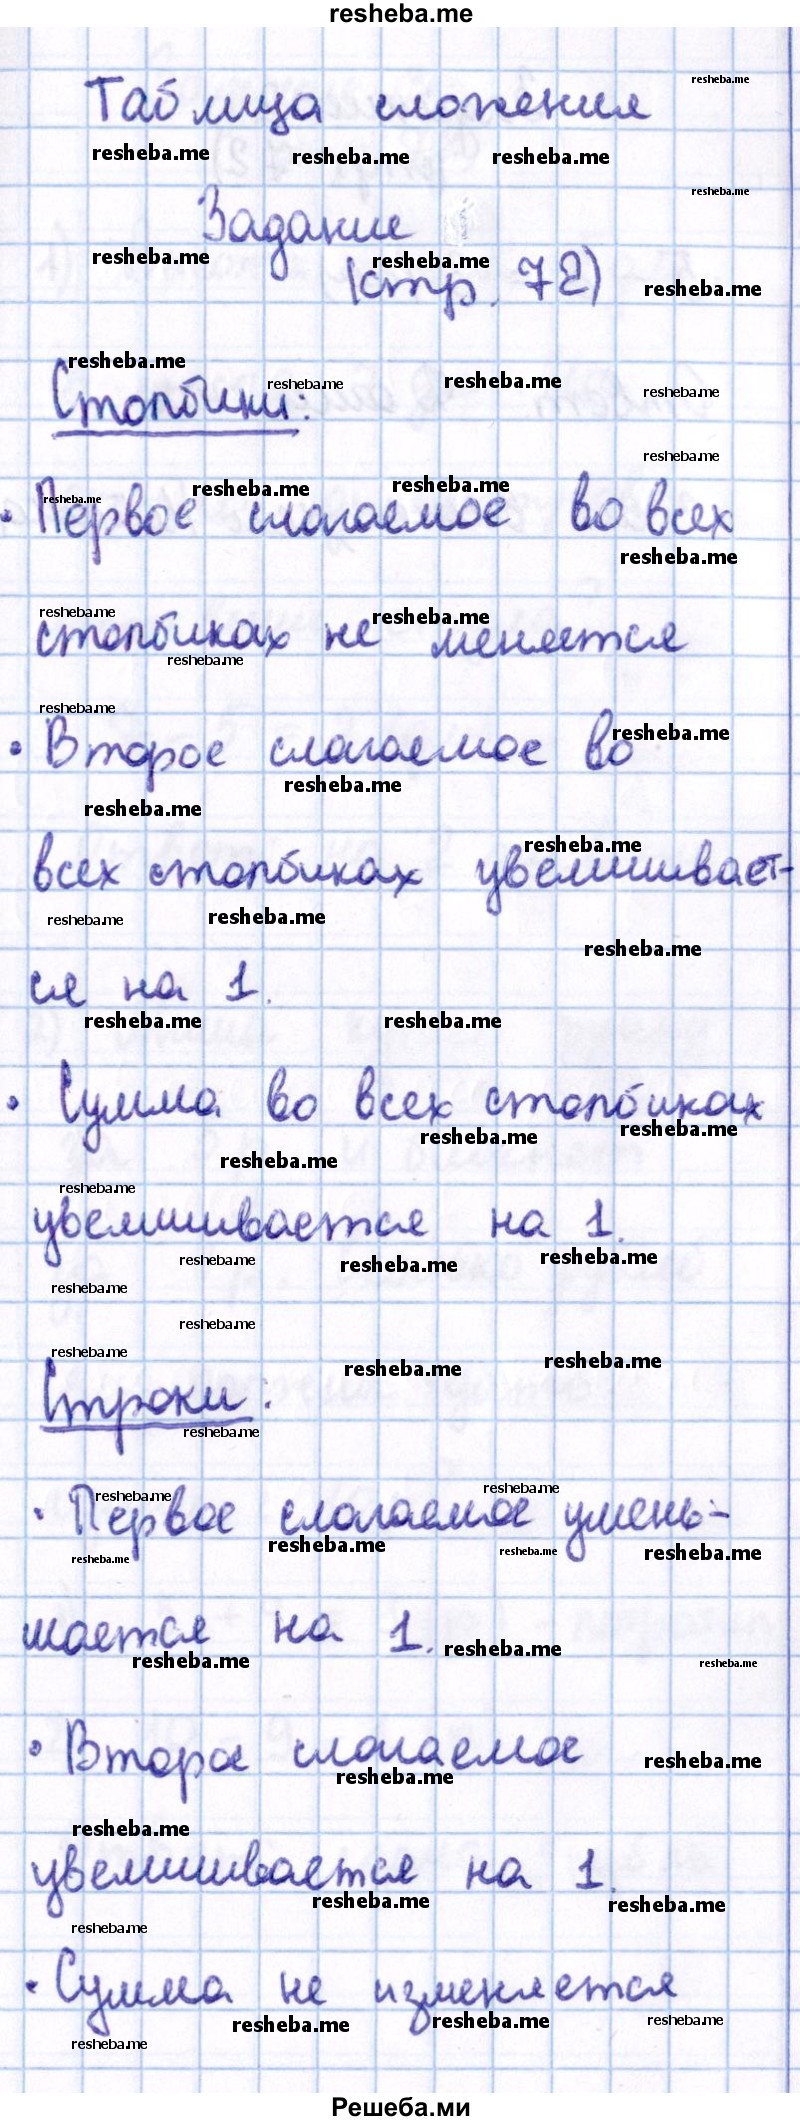 resheba.me
Таблица сложения
Задание
(стр. 72)
Столбики:
• Первое слагаемое во всех
столбиках не меняется
• Второе слагаемое во
всех столбиках увеличивает-
ся на 1.
• Сумма во всех столбиках
увеличивается на 1.
Строки:
• Первое слагаемое умень-
шается на 1.
• Второе слагаемое
увеличивается на 1.
• Сумма не изменяется
Решеба.ми